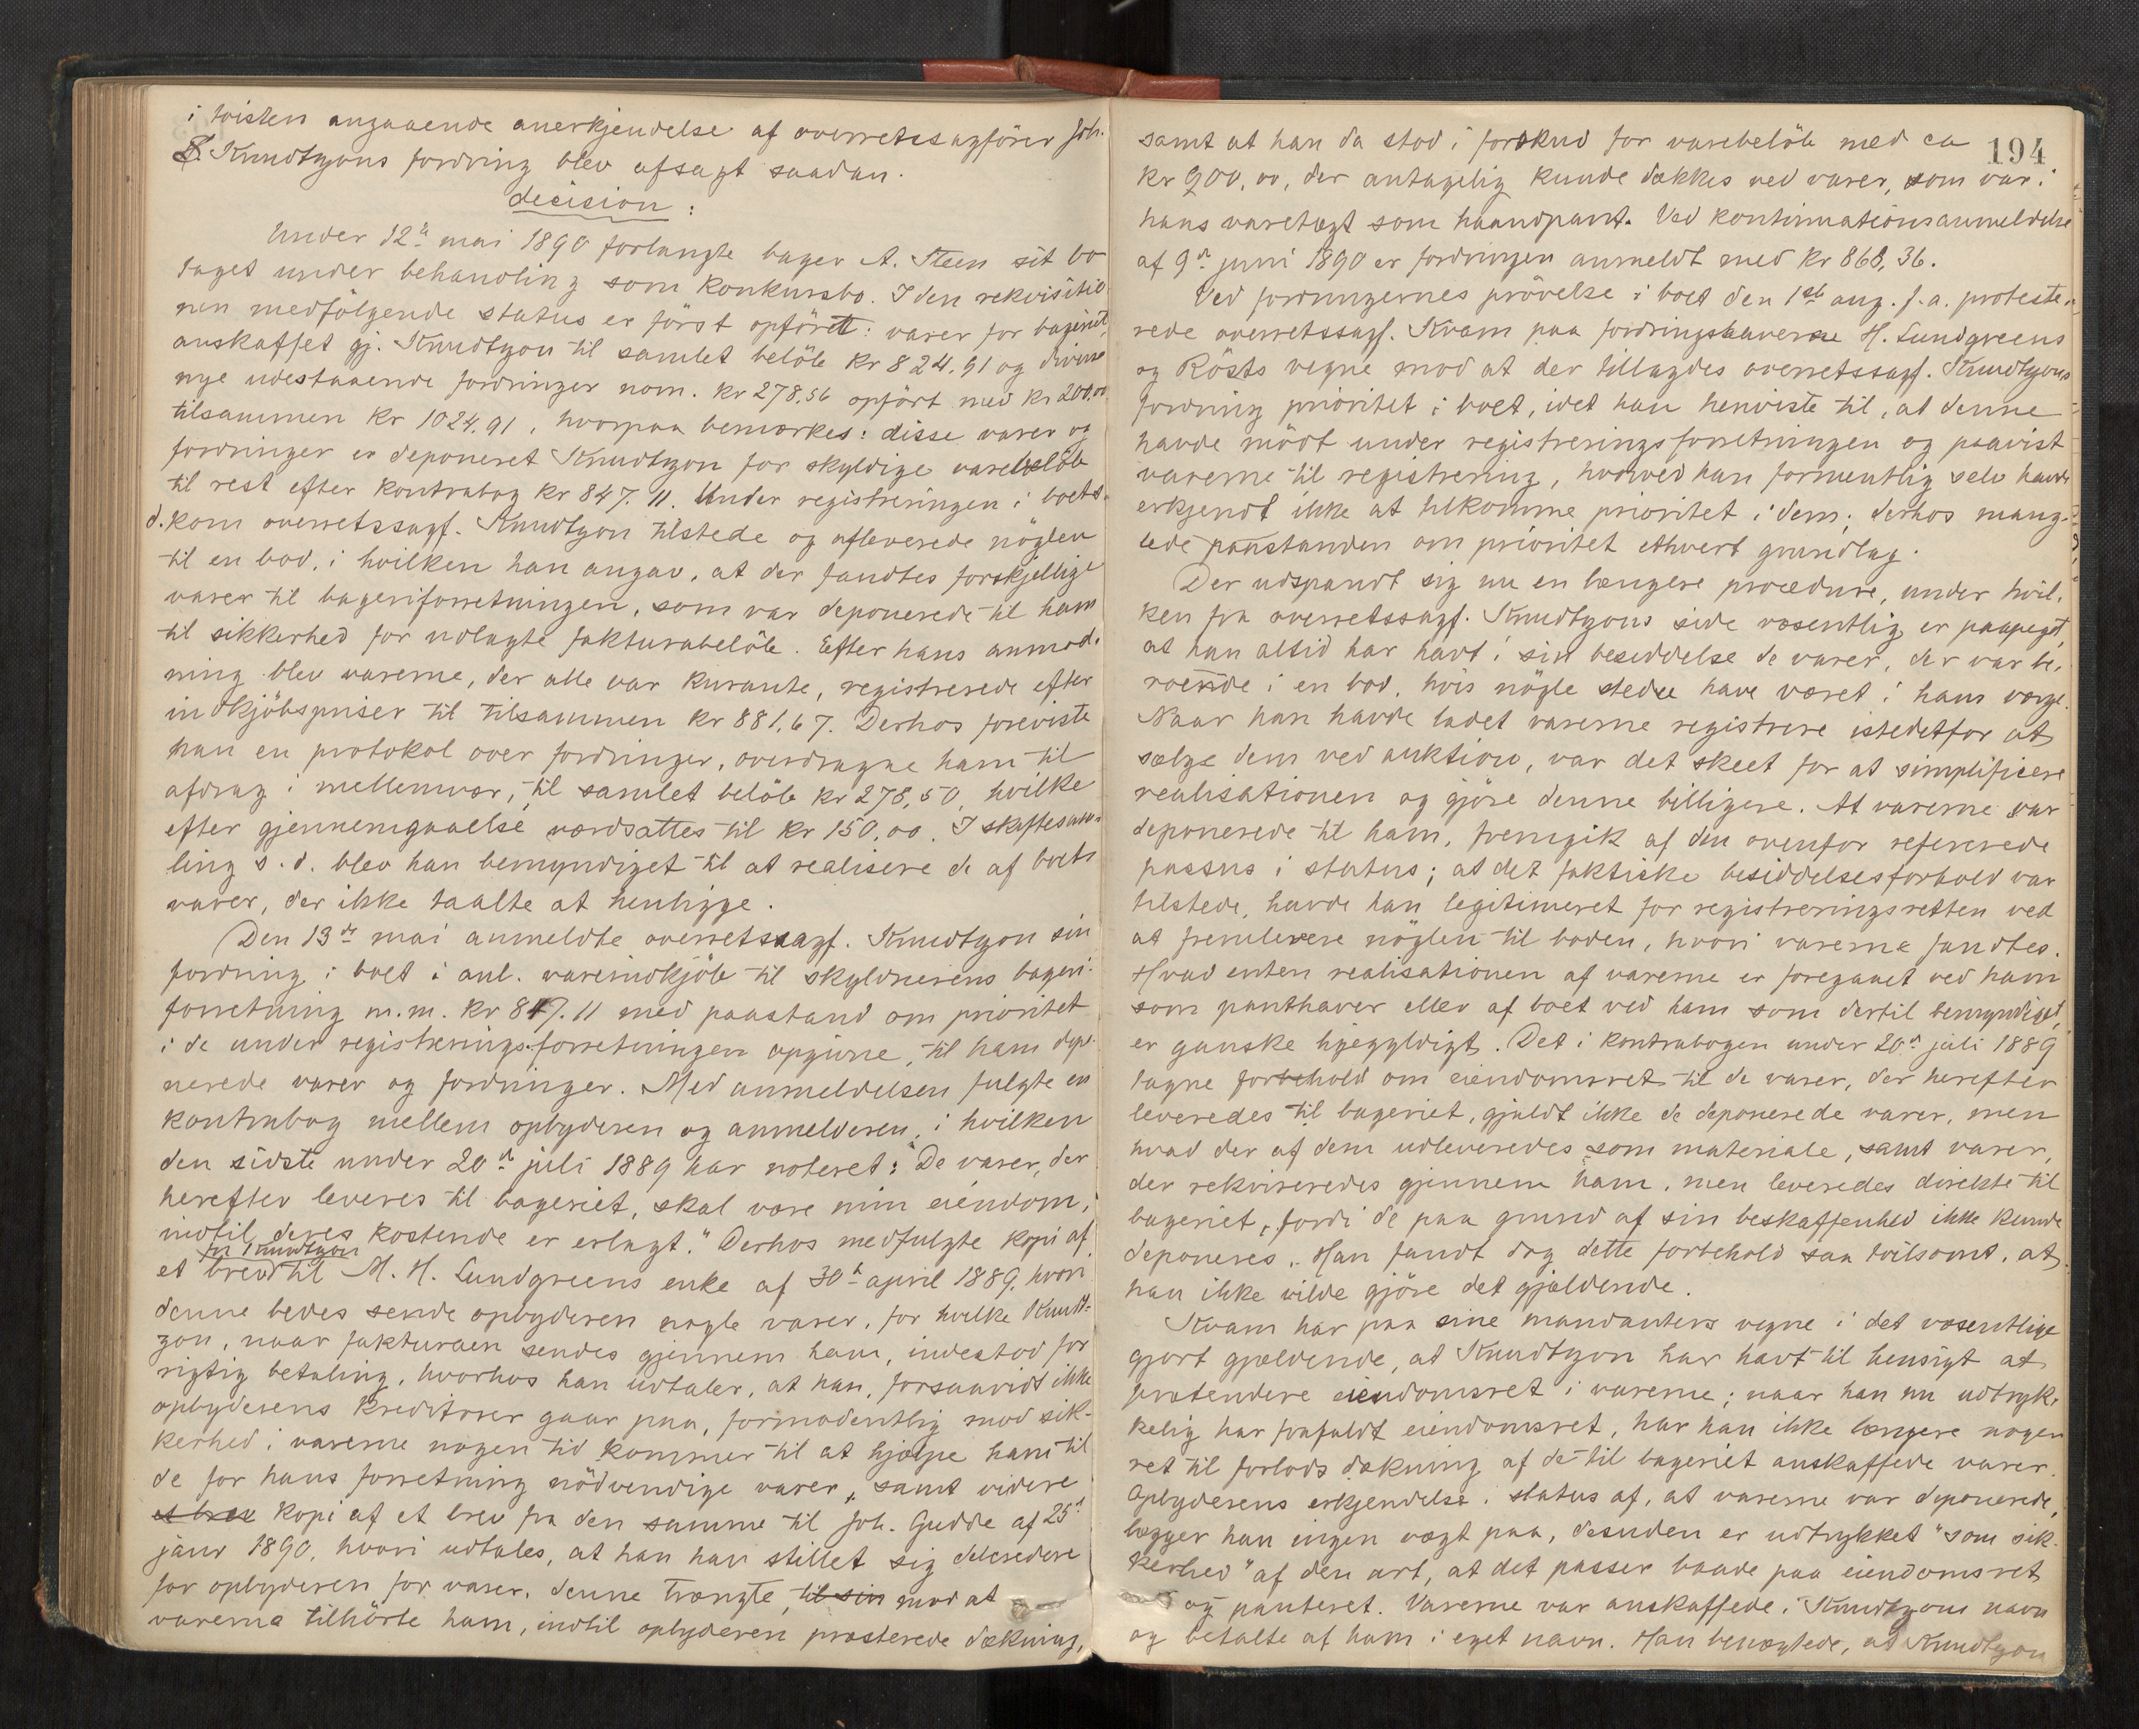 i tvisten angaaende anerkjendelse af overretssagförer Joh.
S. Knudtzons fordring blev afsagt saadan.
decision:
Under 12te mai 1890 forlangte bager A. Steen sit bo
taget under behandling som konkursbo. I den rekvisitio-
nen medfölgende status er först opfört: varer for bageriet,
anskaffet gj. Knudtzon til samlet belöb kr 824.91 og diverse
nye udestaaende fordringer nom. kr 278.56 opfört med kr 200,00
tilsammen kr 1024.91, hvorpaa bemærkes: disse varer og
fordringer er deponeret Knudtzon for skyldige varebelöb
til rest efter kontrabog kr 847.11. Under registreringen i boet s.
d. kom overretssagf. Knudtzon tilstede og afleverede nöglen
til en bod, i hvilken han angav, at der fandtes forskjellige
varer til bageriforretningen, som var deponerede til ham
til sikkerhed for udlagte fakturabelöb. Efter hans anmod-
ning blev varerne, der alle var kurante, registrerede efter
indkjöbspriser til tilsammen kr 881.67. Derhos foreviste
han en protokol over fordringer, overdragne ham til
afdrag i mellemvær, til samlet belöb kr 278,50, hvilke
efter gjennemgaaelse værdsattes til kr 150,00. I skiftesam-
ling s. d. blev han bemyndiget til at realisere de af boets
varer, der ikke taalte at henligge.
Den 13de mai anmeldte overretssagf. Knudtzon sin
fordring i boet i anl. vareindkjöb til skyldnerens bageri-
forretning m.m. kr 847.11 med paastand om prioritet
i de under registreringsforretningen opgivne, til ham depo-
nerede varer og fordringer. Med anmeldelsen fulgte en
kontrabog mellem opbyderen og anmelderen, i hvilken
den sidste under 20de juli 1889 har noteret: "De varer, der
herefter leveres til bageriet, skal være min eiendom,
indtil deres kostende er erlagt." Derhos medfulgte kopi af
fra Knudtzon
et brev til M. H. Lundgreens enke af 30te april 1889, hvori
denne bedes sende opbyderen nogle varer, for hvilke Knudt-
zon, naar fakturaen sendes gjennem ham, indestod for
rigtig betaling, hvorhos han udtaler, at han, forsaavidt ikke
opbyderens kreditorer gaar paa, formodentlig mod sik-
kerhed i varerne nogen tid kommer til at hjælpe ham til
de for hans forretning nödvendige varer, samt videre
et brev kopi af et brev fra den samme til Joh. Gudde af 25de
janr 1890, hvori udtales, at han har stillet sig delcredere
for opbyderen for varer, denne trængte, til sin mod at
varerne tilhörte ham, indtil opbyderen præsterede dækning,
194
samt at han da stod i forskud for varebelöb med ca
kr 900,00, der antagelig kunde dækkes ved varer, som var i
hans varetægt som haandpant. Ved kontinuationsanmeldelse
af 9de juni 1890 er fordringen anmeldt med kr 868,36.
Ved fordringernes prövelse i boet den 1ste aug. f. a. proteste-
rede overretssagf. Kvam paa fordringshaverne H. Lundgreens
og Rösts vegne mod at der tillagdes overretssagf. Knudtzons
fordring prioritet i boet, idet han henviste til, at denne
havde mödt under registreringsforretningen og paavist
varerne til registrering, hvorved han formentlig selv havde
erkjendt ikke at tilkomme prioritet i dem; derhos mang-
lede paastanden om prioritet ethvert grundlag.
Der udspandt sig nu en længere procedure, under hvil-
ken fra overretssagf. Knudtzons side væsentlig er paapeget,
at han altid har havt i sin besiddelse de varer, der var be-
roende i en bod, hvis nögle stedse have været i hans værge.
Naar han havde ladet varerne registrere istedetfor at
sælge dem ved auktion, var det skeet for at simplificere
realisationen og gjöre denne billigere. At varerne var
deponerede til ham, fremgik af den ovenfor refererede
passus i status; at det faktiske besiddelsesforhold var
tilstede, havde han legitimeret for registreringsretten ved
at fremlevere nöglen til boden, hvori varerne fandtes.
Hvad enten realisationen af varerne er foregaaet ved ham
som panthaver eller af boet ved ham som dertil bemyndiget,
er ganske ligegyldigt. Det i kontrabogen under 20de juli 1889
tagne forbehold om eiendomsret til de varer, der herefter
leveredes til bageriet, gjaldt ikke de deponerede varer, men
hvad der af dem udleveredes som materiale, samt varer,
der rekvireredes gjennem ham, men leveredes direkte til
bageriet, fordi de paa grund af sin beskaffenhed ikke kunde
deponeres. Han fandt dog dette forbehold saa tvilsomt, at
han ikke vilde gjöre det gjældende.
Kvam har paa sine mandanters vegne i det væsentlige
gjort gjældende, at Knudtzon har havt til hensigt at
prætendere eiendomsret i varerne; naar han nu udtryk-
kelig har frafaldt eiendomsret, har han ikke længere nogen
ret til forlods dækning af de til bageriet anskaffede varer.
Opbyderens erkjendelse i status af, at varerne var deponerede,
lægger han ingen vægt paa, desuden er udtrykket "som sik-
kerhed" af den art, at det passer baade paa eiendomsret
og panteret. Varerne var anskaffede i Knudtzons navn
og betalte af ham i eget navn. Han benægtede, at Knudtzon